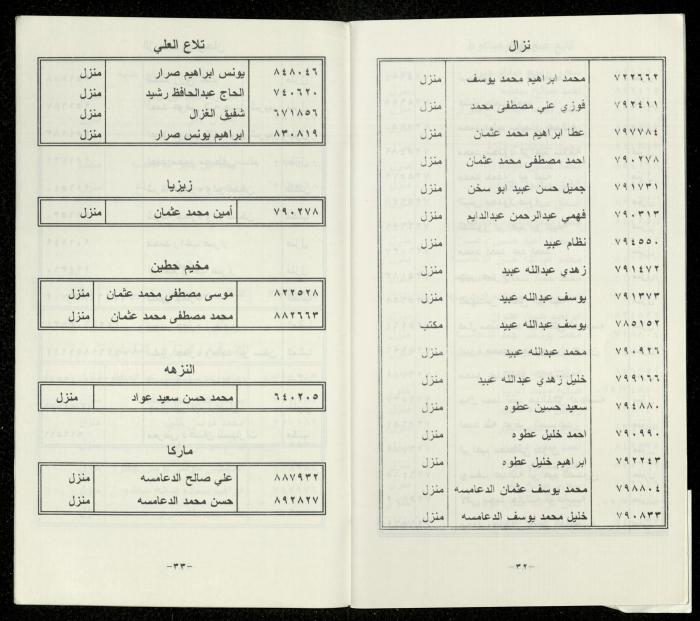 نزال
٧٢٢٦٦٢ محمد ابراهيم محمد يوسف منزل
٧٩٢٤١١ فوزي علي مصطفى محمد منزل
٧٩٧٧٨٤ عطا ابراهيم محمد عثمان منزل
٧٩٠٢٧٨ احمد مصطفى محمد عثمان منزل
٧٩١٧٣١ جميل حسن عبيد ابو سخن منزل
٧٩٠٣١٣ فهمي عبدالرحمن عبدالدايم منزل
٧٩٤٥٥٠ نظام عبيد منزل
٧٩١٤٧٢ زهدي عبدالله عبيد منزل
٧٩١٣٧٣ يوسف عبدالله عبيد منزل
٧٨٥١٥٢ يوسف عبدالله عبيد مكتب
٧٩٠٩٢٦ محمد عبدالله عبيد منزل
٧٩٩١٦٦ خليل زهدي عبدالله عبيد منزل
٧٩٤٨٨٠ سعيد حسين عطوه منزل
٧٩٠٩٩٠ احمد خليل عطوه منزل
٧٩٢٢٤٣ ابراهيم خليل عطوه منزل
٧٩٨٨٠٤ محمد يوسف عثمان الدعامسه منزل
٧٩٠٨٣٣ خليل محمد يوسف الدعامسه منزل
-٣٢-
تلاع العلي
٨٤٨٠٤٦ يونس ابراهيم صرار منزل
٧٤٠٦٢٠ الحاج عبدالحافظ رشيد منزل
٦٧١٨٥٦ شفيق الغزال منزل
٨٣٠٨١٩ ابراهيم يونس صرار منزل
زيزيا
٧٩٠٢٧٨ أمين محمد عثمان منزل
مخيم حطين
٨٢٢٥٢٨ موسى مصطفى محمد عثمان منزل
٨٨٢٦٦٣ محمد مصطفى محمد عثمان منزل
النزهه
٦٤٠٢٠٥ محمد حسن سعيد عواد منزل
ماركا
٨٨٧٩٣٢ علي صالح الدعامسه منزل
٨٩٢٨٢٧ حسن محمد الدعامسه منزل
-٣٣-